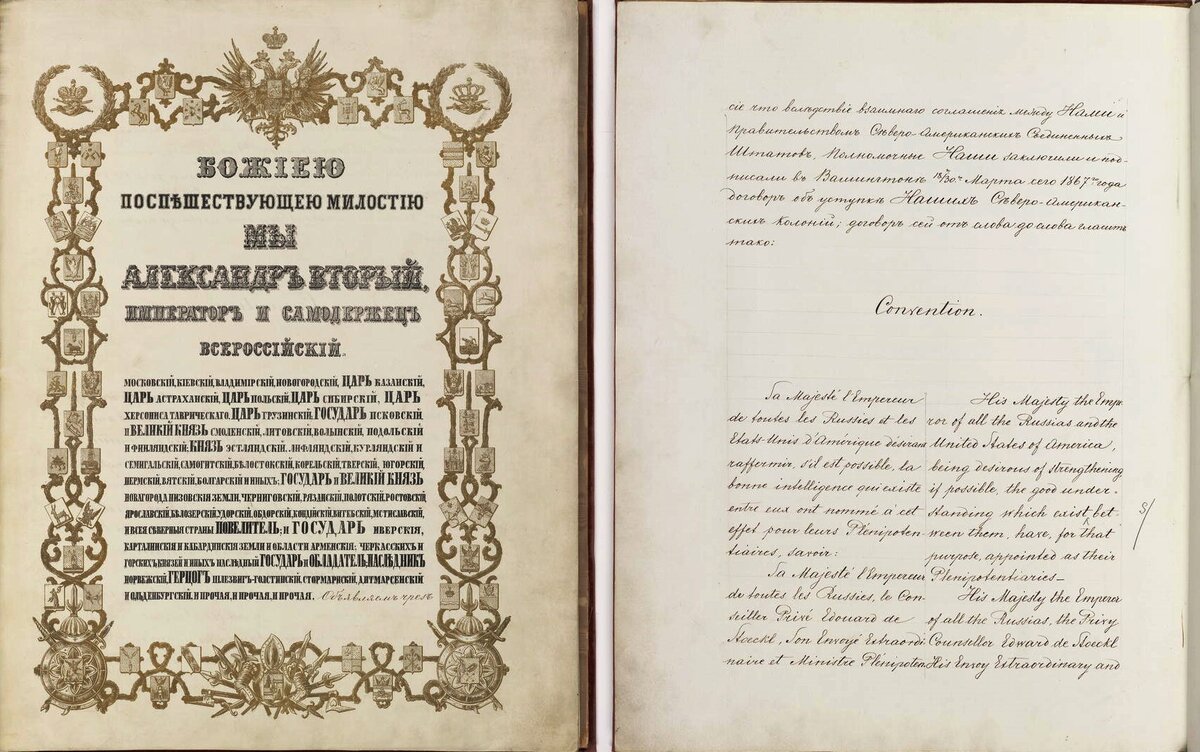 БОЖІЕЮ
ПОСПѢШЕСТВУЮЩЕЮ МИЛОСТІЮ
МЫ
АЛЕКСАНДРЪ ВТОРЫЙ,
ИМПЕРАТОРЪ И САМОДЕРЖЕЦЪ
ВСЕРОССІЙСКІЙ.
МОСКОВСКІЙ, КІЕВСКІЙ, ВЛАДИМІРСКІЙ, НОВОГОРОДСКІЙ, ЦАРЬ КАЗАНСКІЙ,
ЦАРЬ АСТРАХАНСКІЙ, ЦАРЬ ПОЛЬСКІЙ, ЦАРЬ СИБИРСКІЙ, ЦАРЬ
ХЕРСОНИСА ТАВРИЧЕСКАГО, ЦАРЬ ГРУЗИНСКІЙ, ГОСУДАРЬ ПСКОВСКІЙ,
И ВЕЛИКІЙ КНЯЗЬ СМОЛЕНСКІЙ, ЛИТОВСКІЙ, ВОЛЫНСКІЙ, ПОДОЛЬСКІЙ
И ФИНЛЯНДСКІЙ; КНЯЗЬ ЭСТЛЯНДСКІЙ, ЛИФЛЯНДСКІЙ, КУРЛЯНДСКІЙ И
СЕМИГАЛЬСКІЙ, САМОГИТСКІЙ, БѢЛОСТОКСКІЙ, КОРЕЛЬСКІЙ, ТВЕРСКІЙ, ЮГОРСКІЙ,
ПЕРМСКІЙ, ВЯТСКІЙ, БОЛГАРСКІЙ И ИНЫХЪ; ГОСУДАРЬ И ВЕЛИКІЙ КНЯЗЬ
НОВАГОРОДА НИЗОВСКІЯ ЗЕМЛИ, ЧЕРНИГОВСКІЙ, РЯЗАНСКІЙ, ПОЛОТСКІЙ, РОСТОВСКІЙ,
ЯРОСЛАВСКІЙ, БѢЛОЗЕРСКІЙ, УДОРСКІЙ, ОБДОРСКІЙ, КОНДІЙСКІЙ, ВИТЕБСКІЙ, МСТИСЛАВСКІЙ,
И ВСЕЯ СѢВЕРНЫЯ СТРАНЫ ПОВЕЛИТЕЛЬ; И ГОСУДАРЬ ИВЕРСКІЯ,
КАРТАЛИНСКІЯ И КАБАРДИНСКІЯ ЗЕМЛИ И ОБЛАСТИ АРМЕНСКІЯ; ЧЕРКАССКИХЪ И
ГОРСКИХЪ КНЯЗЕЙ И ИНЫХЪ НАСЛѢДНЫЙ ГОСУДАРЬ И ОБЛАДАТЕЛЬ; НАСЛѢДНИКЪ
НОРВЕЖСКІЙ, ГЕРЦОГЪ ШЛЕЗВИГЪ-ГОЛСТИНСКІЙ, СТОРМАРНСКІЙ, ДИТМАРСЕНСКІЙ
И ОЛЬДЕНБУРГСКІЙ, И ПРОЧАЯ, И ПРОЧАЯ, И ПРОЧАЯ. Объявляемъ чрезъ
сіе что вслѣдствіе взаимнаго соглашенія между Нами и
Правительствомъ Сѣверо-Американскихъ Соединенныхъ
Штатовъ, Полномочные Наши заключили и под-
писали въ Вашингтонѣ 18/30го Марта сего 1867го года
договоръ объ уступкѣ Нашихъ Сѣверо-Американ-
скихъ Колоній; договоръ сей отъ слова до слова гласитъ
тако:
Convention.
Sa Majesté l'Empereur
de toutes les Russies et les
Etats-Unis d'Amérique désirant
raffermir, s'il est possible, la
bonne intelligence qui existe
entre eux ont nommé à cet
effet pour leurs Plénipoten
tiaires, savoir:
Sa Majesté l'Empereur
de toutes les Russies, le Con
seiller Privé Edouard de
Stoeckl, Son Envoyé Extraordi
naire et Ministre Plénipoten
His Majesty the Empe
ror of all the Russias and the
United States of America,
being desirous of strengthening
if possible, the good under-
standing which exist, bet
ween them, have, for that
purpose, appointed as their
Plenipotentiaries_
His Majesty the Emperor
of all the Russias, the Privy
Counsellor Edward de Stoeckl
His Envoy Extraordinary and
s/